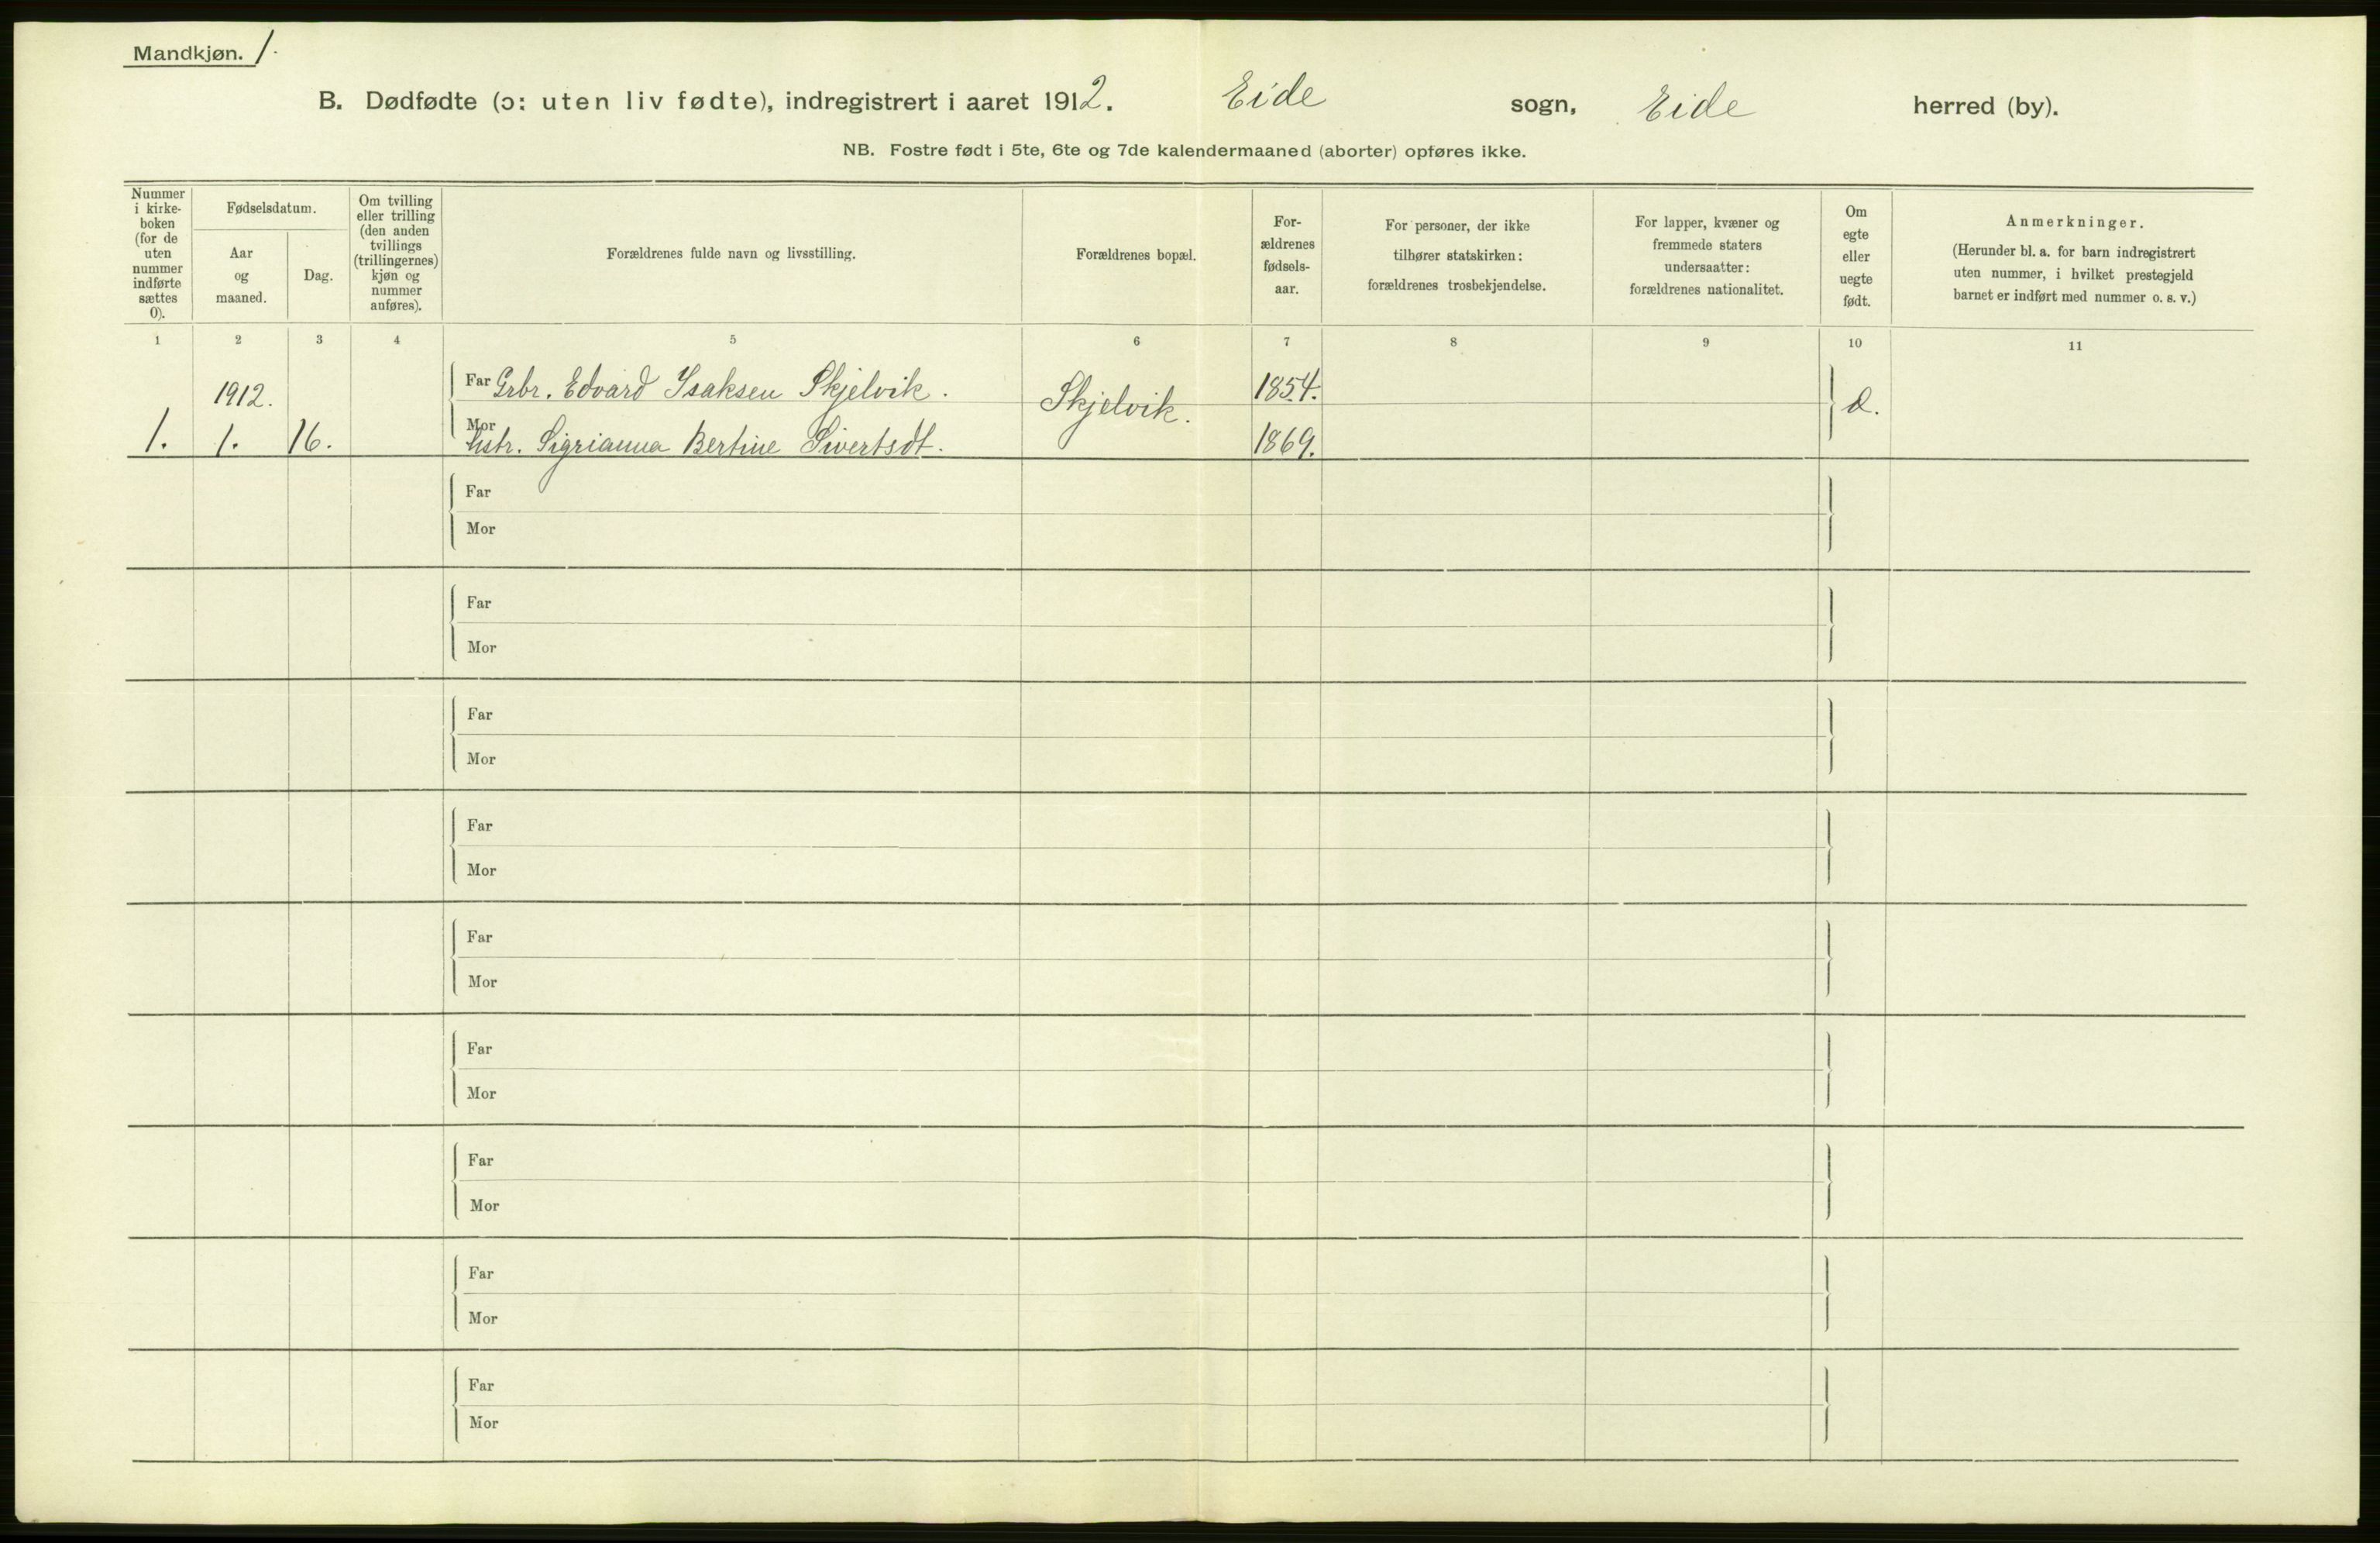 Mandkjøn. 1.
B. Dødfødte (ɔ: uten liv fødte), indregistrert i aaret 1912. Eide sogn, Eide herred (by).
NB. Fostre født i 5te, 6te og 7de kalendermaaned (aborter) opføres ikke.
Nummer
i kirke-
boken
(for de
uten
nummer
indførte
sættes
0).
Fødselsdatum.
Aar
og
maaned.
Dag.
Om tvilling
eller trilling
(den anden
tvillings
(trillingernes)
kjøn og
nummer
anføres).
Forældrenes fulde navn og livsstilling.
Forældrenes bopæl.
For-
ældrenes
fødsels-
aar.
For personer, der ikke
tilhører statskirken:
forældrenes trosbekjendelse.
For lapper, kvæner og
fremmede staters
undersaatter:
forældrenes nationalitet.
Om
egte
eller
uegte
født.
Anmerkninger.
(Herunder bl. a. for barn indregistrert
uten nummer, i hvilket prestegjeld
barnet er indført med nummer o. s. v.)
1 2 3 4 5 6 7 8 9 10 11
1912. Far Grbr. Edvard Isaksen Skjelvik. Skjelvik. 1854.
1. 1. 16. Mor Hstr. Sigrianna Bertine Sivertsdt. 1869.
Far
Mor
Far
Mor
Far
Mor
Far
Mor
Far
Mor
Far
Mor
Far
Mor
Far
Mor
Far
Mor